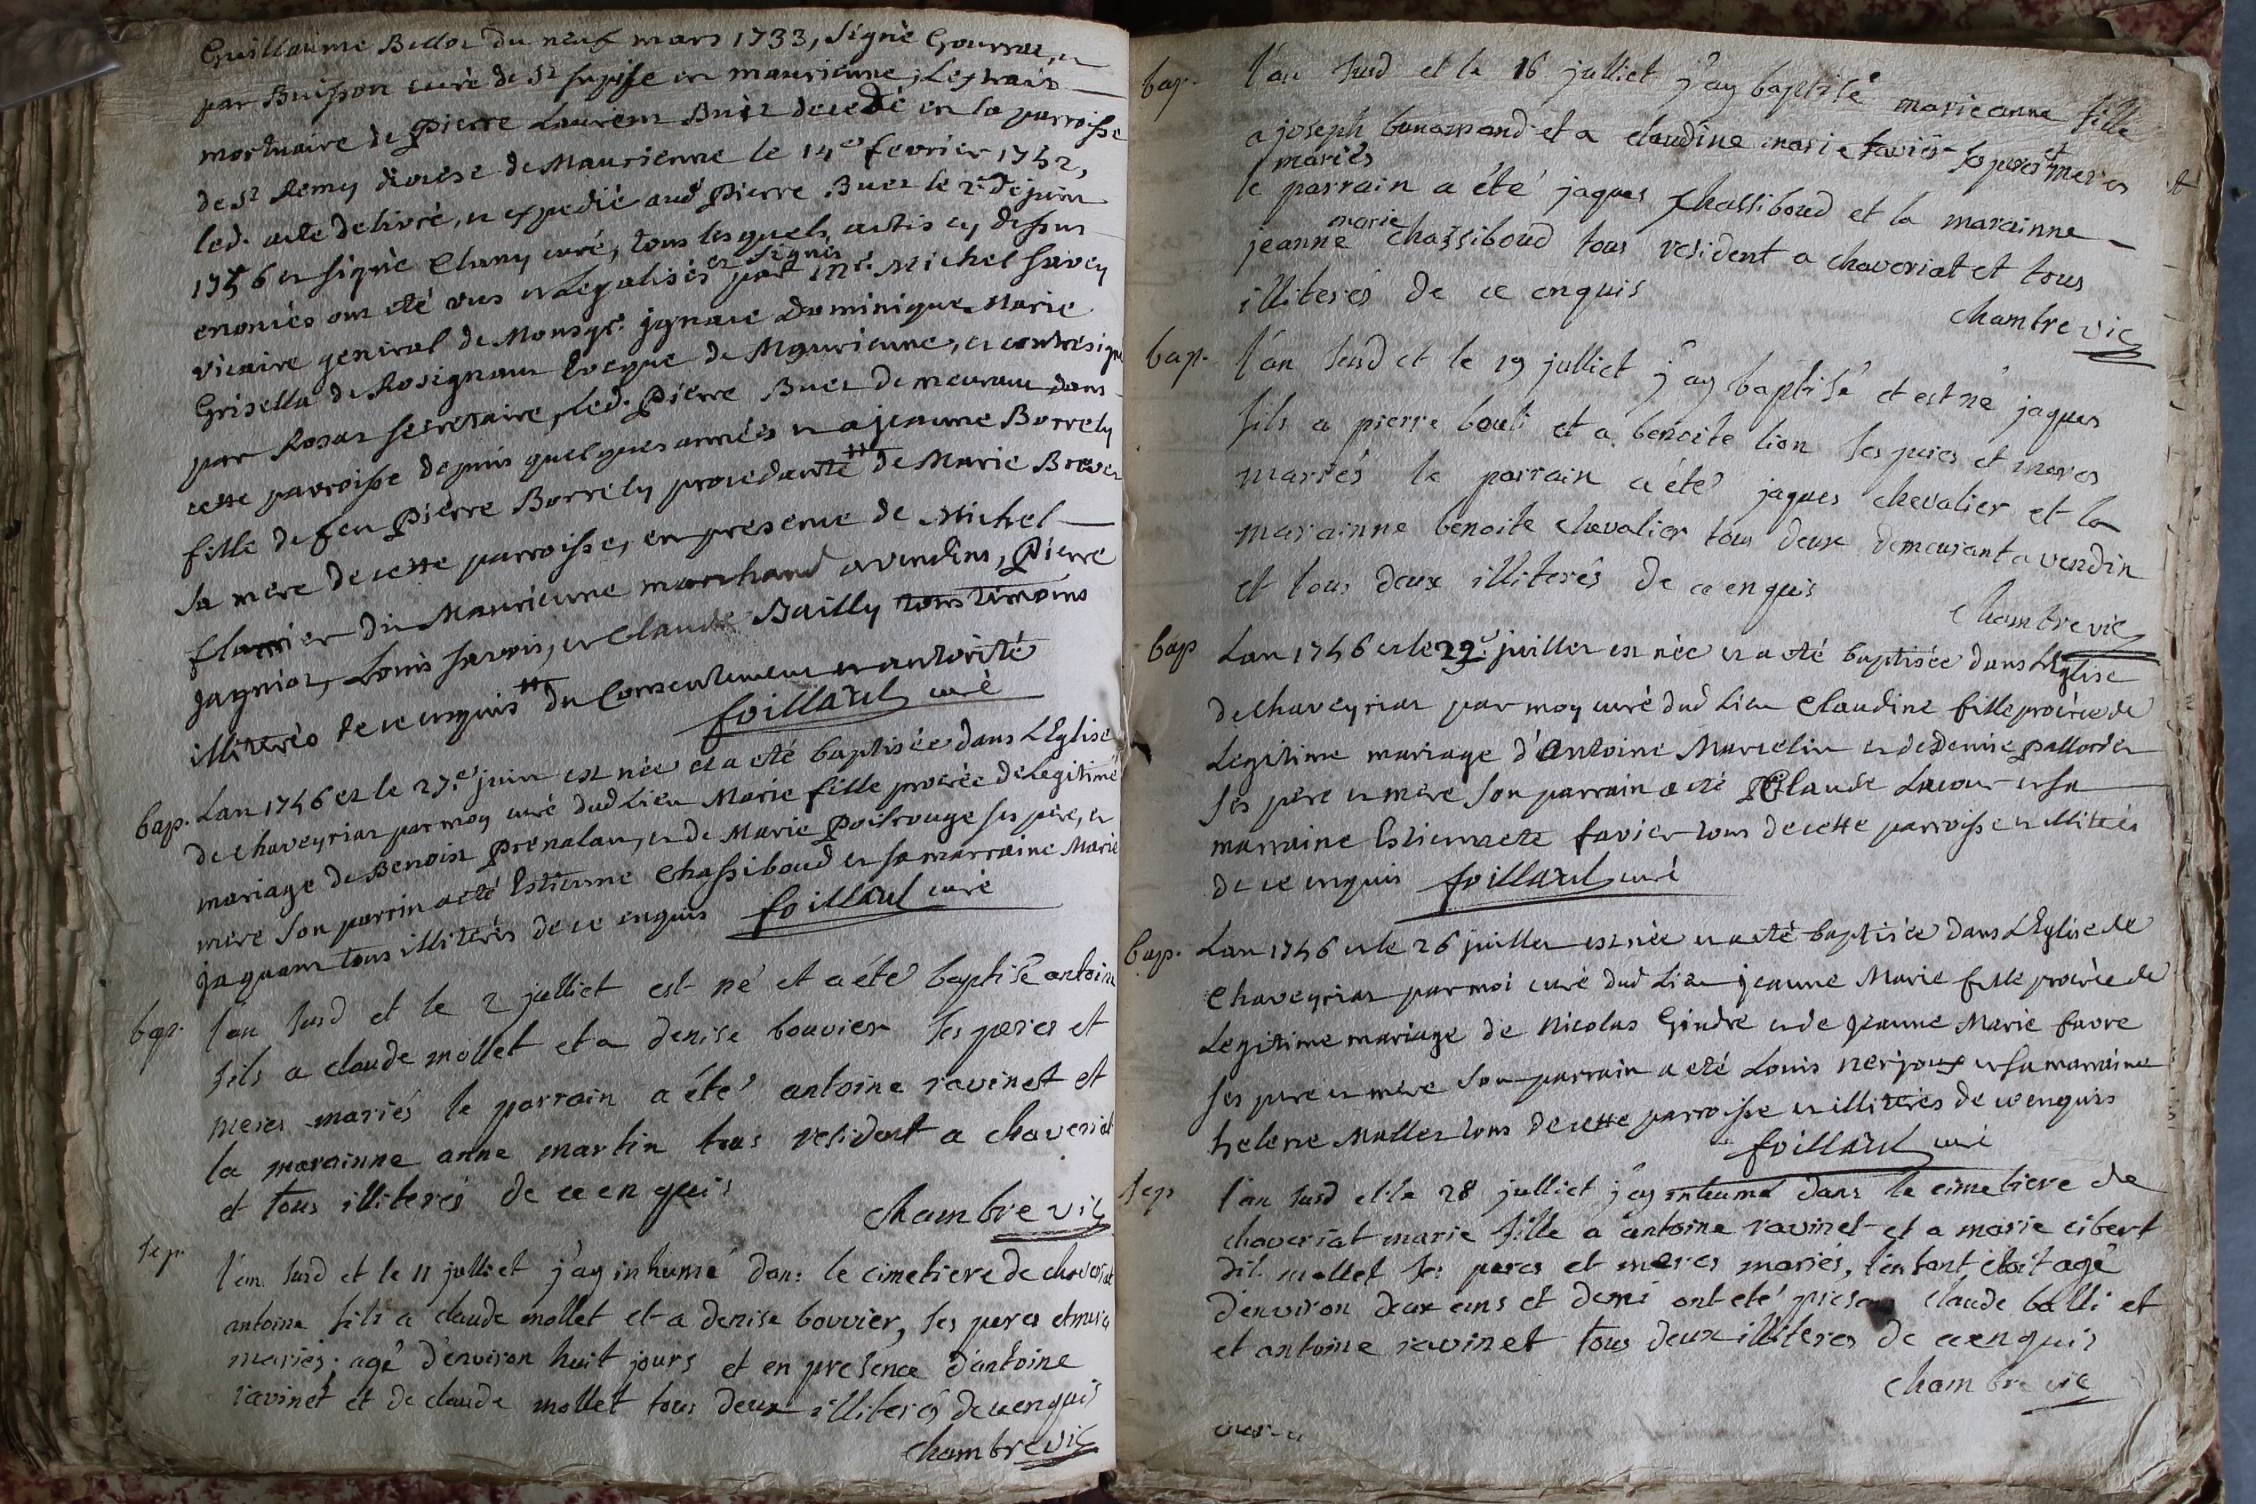 Guillaume Billot du neuf mars 1733, signé Gourrat, et
par Buisson curé de St Supise en maurienne, Lextrait
mortuaire de Pierre Laurent Buet decedé en la parroisse
de St Remy diocese de Maurienne le 14e fevrier 1742,
led. acte delivré, et expedié aud Pierre Buet le 2e de juin
1746 et signé Cluny curé, tous lesquels actes cy dessus
enoncés ont eté vus et Legalisés et signés par mre. Michel Savey
vicaire general de Monsgr. ignace Dominique Marie
Grisella de Rosignan Eveque de Maurienne, et contresigné
par Rosaz secretaire, led. Pierre Buet demeurant dans
cette parroisse depuis quelques années et a jeanne Borrely
fille de feu Pierre Borrely procedante de Marie
sa mere de cette parroisse, en presence de Michel
de Maurienne marchand a vendins, Pierre
jagniot, Louis et Claude Bailly tous temoins
illiterés de ce enquis du Consentement et autorité
foillard curé
bap. Lan 1746 et le 27e juin est née et a eté baptisée dans L'Eglise
de Chaveyriat par moy curé dud Lieu Marie fille procréée de Legitime
mariage de Benoist Prenalan, et de Marie Poilrouge ses père, et
mere son parrin a eté Estienne Chassiboud et sa marraine Marie
jaquam tous illiterés de ce enquis foillard curé
bap. l'an susd et le 2 julliet est né et a été baptisé antoine
fils a claude mollet et a denise bouvier ses peres et
meres mariés le parrain a été antoine ravinet et
la marainne anne martin tous resident a chaveriat
et tous illiterés de ce enquis
chambre vic
sep. l'an susd et le 11 julliet j'ay inhumé dans le cimetiere de chaveriat
antoine fils a claude mollet et a denise bouvier, ses peres et meres
mariés. agé d'environ huit jours et en presence d'antoine
ravinet et de claude mollet tous deux illiterés de ce enquis
chambre vic
bap. l'an susd et le 16 julliet j'ay baptisé marieanne fille
a joseph bonamand et a claudine marie favier ses peres et meres
mariés
le parrain a été jaques chassiboud et la marainne
jeanne marie chassiboud tous resident a chaveriat et tous
illiterés de ce enquis
chambre vic
bap. l'an susd et le 19 julliet j'ay baptisé et est né jaques
fils a pierre bouli et a benoite lion ses peres et meres
mariés le parrain a été jaques chevalier et la
marainne benoite chevalier tous deux demeurant a vendin
et tous deux illiterés de ce enquis
chambre vic
bap Lan 1746 et le 22e juillet est née et a eté baptisée dans L'Eglise
de Chaveyriat par moy curé dud Lieu Claudine fille procréée de
Legitime mariage d'Antoine Marcelin et de Denise Pallordet
ses pere et mere son parrain a eté Claude Lacour et sa
marraine Estiennete favier tous de cette parroisse et illiterés
de ce enquis foillard curé
bap. Lan 1746 et le 26 juillet est née et a eté baptisée dans L'Eglise de
Chaveyriat par moi curé dud Lieu jeanne Marie fille procréée de
Legitime mariage de Nicolas Gindre et de Jeanne Marie favre
ses pere et mere son parrain a eté Louis nerjoux et sa marraine
helene Mollet tous de cette parroisse et illiterés de ce enquis
foillard curé
sep l'an susd et le 28 julliet j'ay inhumé dans le cimetiere de
chaveriat marie fille a antoine ravinet et a marie cibert
dit mollet ses peres et meres mariés, l'enfant étoit agé
d'environ deux ans et demi ont eté claude balli et
et antoine ravinet tous deux illiteres de ce enquis
chambre vic